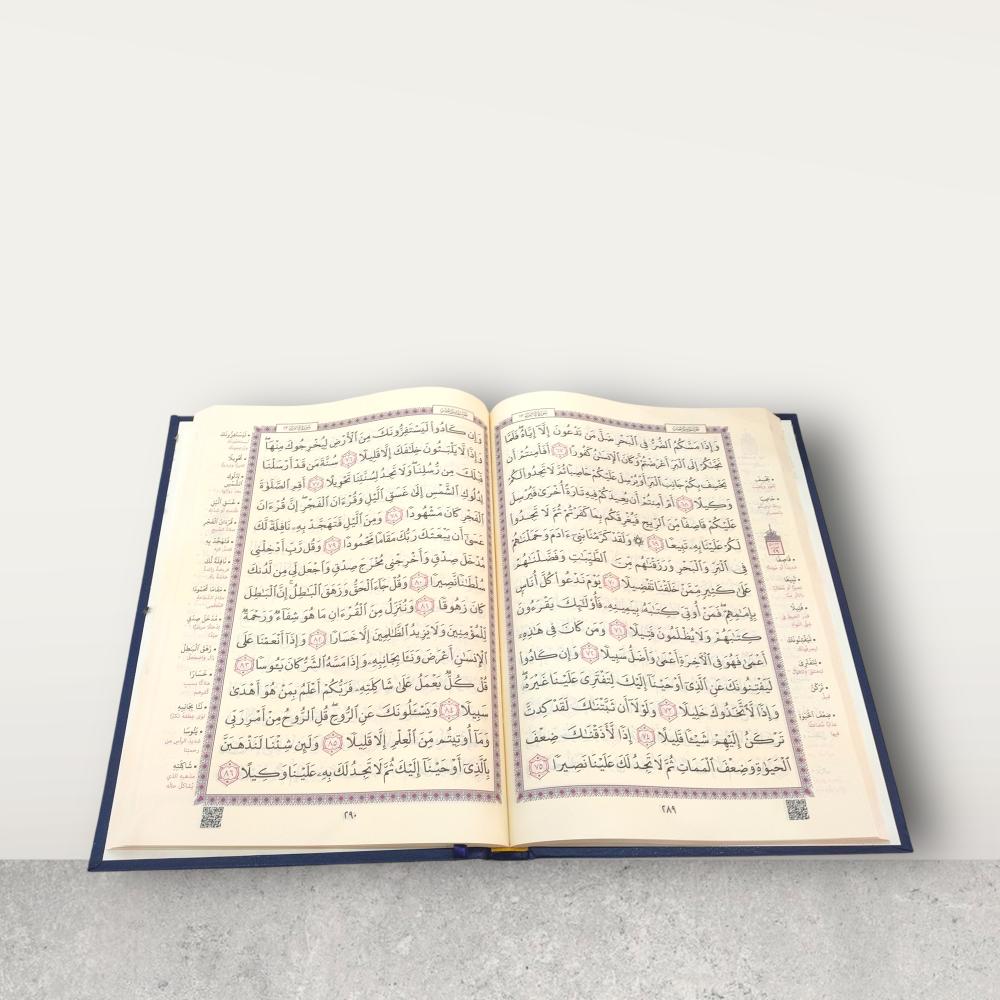 وَإِذَا مَسَّكُمُ ٱلضُّرُّ فِي ٱلْبَحْرِ ضَلَّ مَن تَدْعُونَ إِلَّآ إِيَّاهُ فَلَمَّا
نَجَّىٰكُمْ إِلَى ٱلْبَرِّ أَعْرَضْتُمْ وَكَانَ ٱلْإِنسَٰنُ كَفُورًا ٦٧ أَفَأَمِنتُمْ أَن
يَخْسِفَ بِكُمْ جَانِبَ ٱلْبَرِّ أَوْ يُرْسِلَ عَلَيْكُمْ حَاصِبًا ثُمَّ لَا تَجِدُوا۟ لَكُمْ
وَكِيلًا ٦٨ أَمْ أَمِنتُمْ أَن يُعِيدَكُمْ فِيهِ تَارَةً أُخْرَىٰ فَيُرْسِلَ
عَلَيْكُمْ قَاصِفًا مِّنَ ٱلرِّيحِ فَيُغْرِقَكُم بِمَا كَفَرْتُمْ ثُمَّ لَا تَجِدُوا۟
لَكُمْ عَلَيْنَا بِهِۦ تَبِيعًا ٦٩ ۞ وَلَقَدْ كَرَّمْنَا بَنِىٓ ءَادَمَ وَحَمَلْنَٰهُمْ
فِي ٱلْبَرِّ وَٱلْبَحْرِ وَرَزَقْنَٰهُم مِّنَ ٱلطَّيِّبَٰتِ وَفَضَّلْنَٰهُمْ
عَلَىٰ كَثِيرٍ مِّمَّنْ خَلَقْنَا تَفْضِيلًا ٧٠ يَوْمَ نَدْعُوا۟ كُلَّ أُنَاسٍۭ
بِإِمَٰمِهِمْ فَمَنْ أُوتِىَ كِتَٰبَهُۥ بِيَمِينِهِۦ فَأُو۟لَٰٓئِكَ يَقْرَءُونَ
كِتَٰبَهُمْ وَلَا يُظْلَمُونَ فَتِيلًا ٧١ وَمَن كَانَ فِي هَٰذِهِۦٓ
أَعْمَىٰ فَهُوَ فِي ٱلْءَاخِرَةِ أَعْمَىٰ وَأَضَلُّ سَبِيلًا ٧٢ وَإِن كَادُوا۟
لَيَفْتِنُونَكَ عَنِ ٱلَّذِىٓ أَوْحَيْنَآ إِلَيْكَ لِتَفْتَرِىَ عَلَيْنَا غَيْرَهُۥ
وَإِذًا لَّٱتَّخَذُوكَ خَلِيلًا ٧٣ وَلَوْلَآ أَن ثَبَّتْنَٰكَ لَقَدْ كِدتَّ
تَرْكَنُ إِلَيْهِمْ شَيْـًٔا قَلِيلًا ٧٤ إِذًا لَّأَذَقْنَٰكَ ضِعْفَ
ٱلْحَيَوٰةِ وَضِعْفَ ٱلْمَمَاتِ ثُمَّ لَا تَجِدُ لَكَ عَلَيْنَا نَصِيرًا ٧٥
٢٨٩
وَإِن كَادُوا۟ لَيَسْتَفِزُّونَكَ مِنَ ٱلْأَرْضِ لِيُخْرِجُوكَ مِنْهَا
وَإِذًا لَّا يَلْبَثُونَ خِلَٰفَكَ إِلَّا قَلِيلًا ٧٦ سُنَّةَ مَن قَدْ أَرْسَلْنَا
قَبْلَكَ مِن رُّسُلِنَا وَلَا تَجِدُ لِسُنَّتِنَا تَحْوِيلًا ٧٧ أَقِمِ ٱلصَّلَوٰةَ
لِدُلُوكِ ٱلشَّمْسِ إِلَىٰ غَسَقِ ٱلَّيْلِ وَقُرْءَانَ ٱلْفَجْرِ إِنَّ قُرْءَانَ
ٱلْفَجْرِ كَانَ مَشْهُودًا ٧٨ وَمِنَ ٱلَّيْلِ فَتَهَجَّدْ بِهِۦ نَافِلَةً لَّكَ
عَسَىٰٓ أَن يَبْعَثَكَ رَبُّكَ مَقَامًا مَّحْمُودًا ٧٩ وَقُل رَّبِّ أَدْخِلْنِى
مُدْخَلَ صِدْقٍ وَأَخْرِجْنِى مُخْرَجَ صِدْقٍ وَٱجْعَل لِّى مِن لَّدُنكَ
سُلْطَٰنًا نَّصِيرًا ٨٠ وَقُلْ جَآءَ ٱلْحَقُّ وَزَهَقَ ٱلْبَٰطِلُ إِنَّ ٱلْبَٰطِلَ
كَانَ زَهُوقًا ٨١ وَنُنَزِّلُ مِنَ ٱلْقُرْءَانِ مَا هُوَ شِفَآءٌ وَرَحْمَةٌ
لِّلْمُؤْمِنِينَ وَلَا يَزِيدُ ٱلظَّٰلِمِينَ إِلَّا خَسَارًا ٨٢ وَإِذَآ أَنْعَمْنَا عَلَى
ٱلْإِنسَٰنِ أَعْرَضَ وَنَـَٔا بِجَانِبِهِۦ وَإِذَا مَسَّهُ ٱلشَّرُّ كَانَ يَـُٔوسًا ٨٣
قُلْ كُلٌّ يَعْمَلُ عَلَىٰ شَاكِلَتِهِۦ فَرَبُّكُمْ أَعْلَمُ بِمَنْ هُوَ أَهْدَىٰ
سَبِيلًا ٨٤ وَيَسْـَٔلُونَكَ عَنِ ٱلرُّوحِ قُلِ ٱلرُّوحُ مِنْ أَمْرِ رَبِّى
وَمَآ أُوتِيتُم مِّنَ ٱلْعِلْمِ إِلَّا قَلِيلًا ٨٥ وَلَئِن شِئْنَا لَنَذْهَبَنَّ
بِٱلَّذِىٓ أَوْحَيْنَآ إِلَيْكَ ثُمَّ لَا تَجِدُ لَكَ بِهِۦ عَلَيْنَا وَكِيلًا ٨٦
٢٩٠